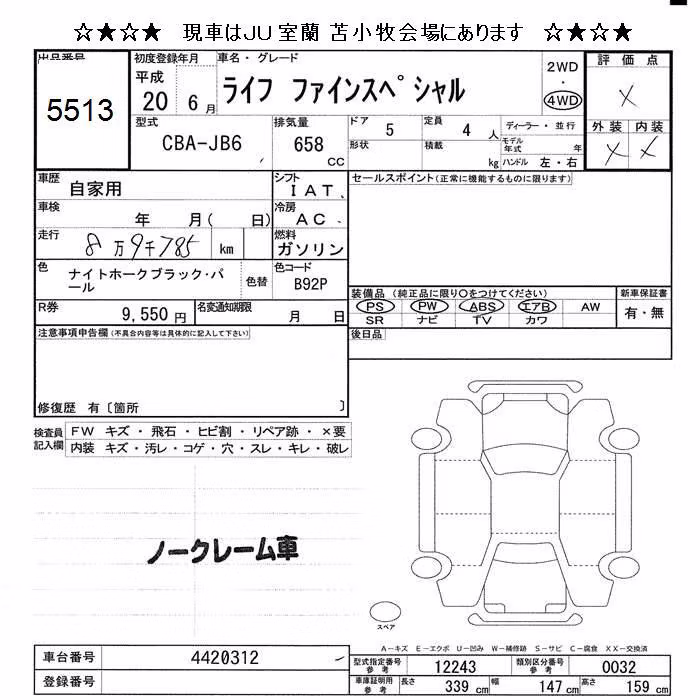 ☆★☆★ 現車はJU室蘭 苫小牧会場にあります ☆★☆★
出品番号 初度登録年月 車名・グレード 評価点
5513 平成 20 6月 ライフ ファインスペシャル 2WD ・ 4WD ×
型式 排気量 ドア 5 定員 4 人 ディーラー・並行 外装 内装
CBA-JB6 658 cc 形状 積載 kg モデル年式 年 × ×
ハンドル 左・右
車歴 自家用 シフト IAT セールスポイント(正常に機能するものに限ります)
車検 年 月( 日) 冷房 AC
走行 8万9千785 km 燃料 ガソリン
色 ナイトホークブラック・パール 色替 色コード B92P
装備品 (純正品に限り○をつけてください) 新車保証書
PS PW ABS エアB AW 有・無
SR ナビ TV カワ
R券 9,550円 名変通知期限 月 日
注意事項申告欄(不具合内容等は具体的に記入して下さい) 後日品
修復歴 有〔箇所 〕
検査員記入欄 FW キズ・飛石・ヒビ割・リペア跡・×要
内装 キズ・汚レ・コゲ・穴・スレ・キレ・破レ
ノークレーム車
スペア
A-キズ E-エクボ U-凹み W-補修跡 S-サビ C-腐食 XX-交換済
車台番号 4420312 型式指定番号 参考 12243 類別区分番号 参考 0032
登録番号 車庫証明用 参考 長さ 339 cm 幅 147 cm 高さ 159 cm